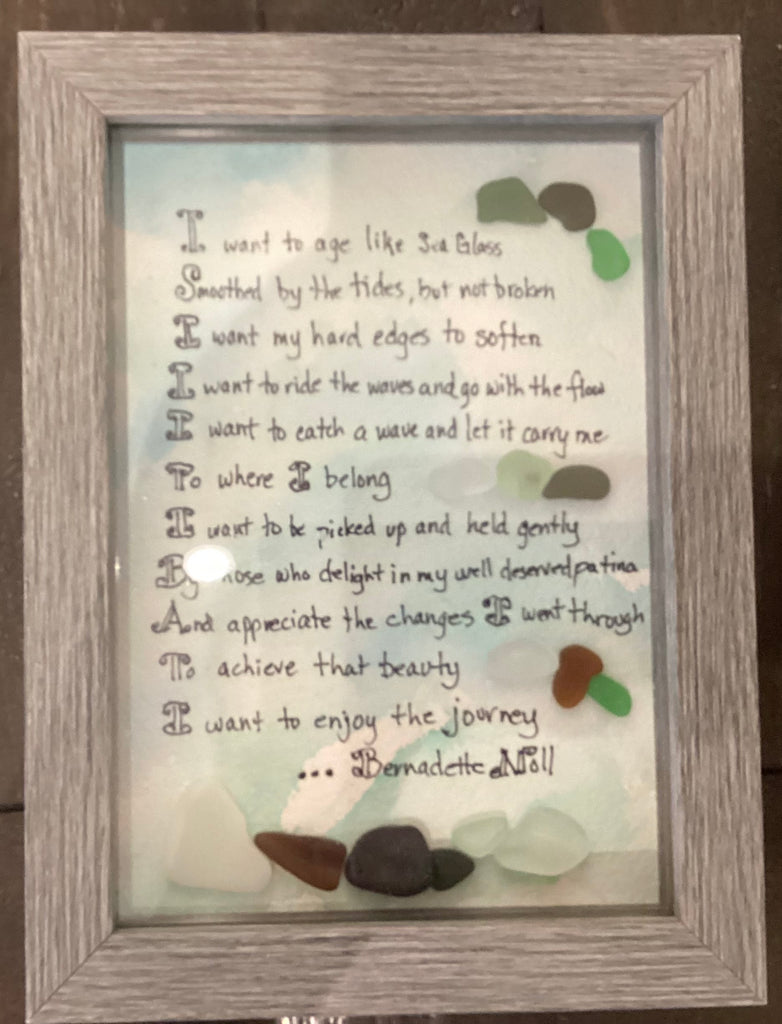 I want to age like Sea Glass
Smoothed by the tides, but not broken
I want my hard edges to soften
I want to ride the waves and go with the flow
I want to catch a wave and let it carry me
To where I belong
I want to be picked up and held gently
By those who delight in my well deserved patina
And appreciate the changes I went through
To achieve that beauty
I want to enjoy the journey
... Bernadette Noll